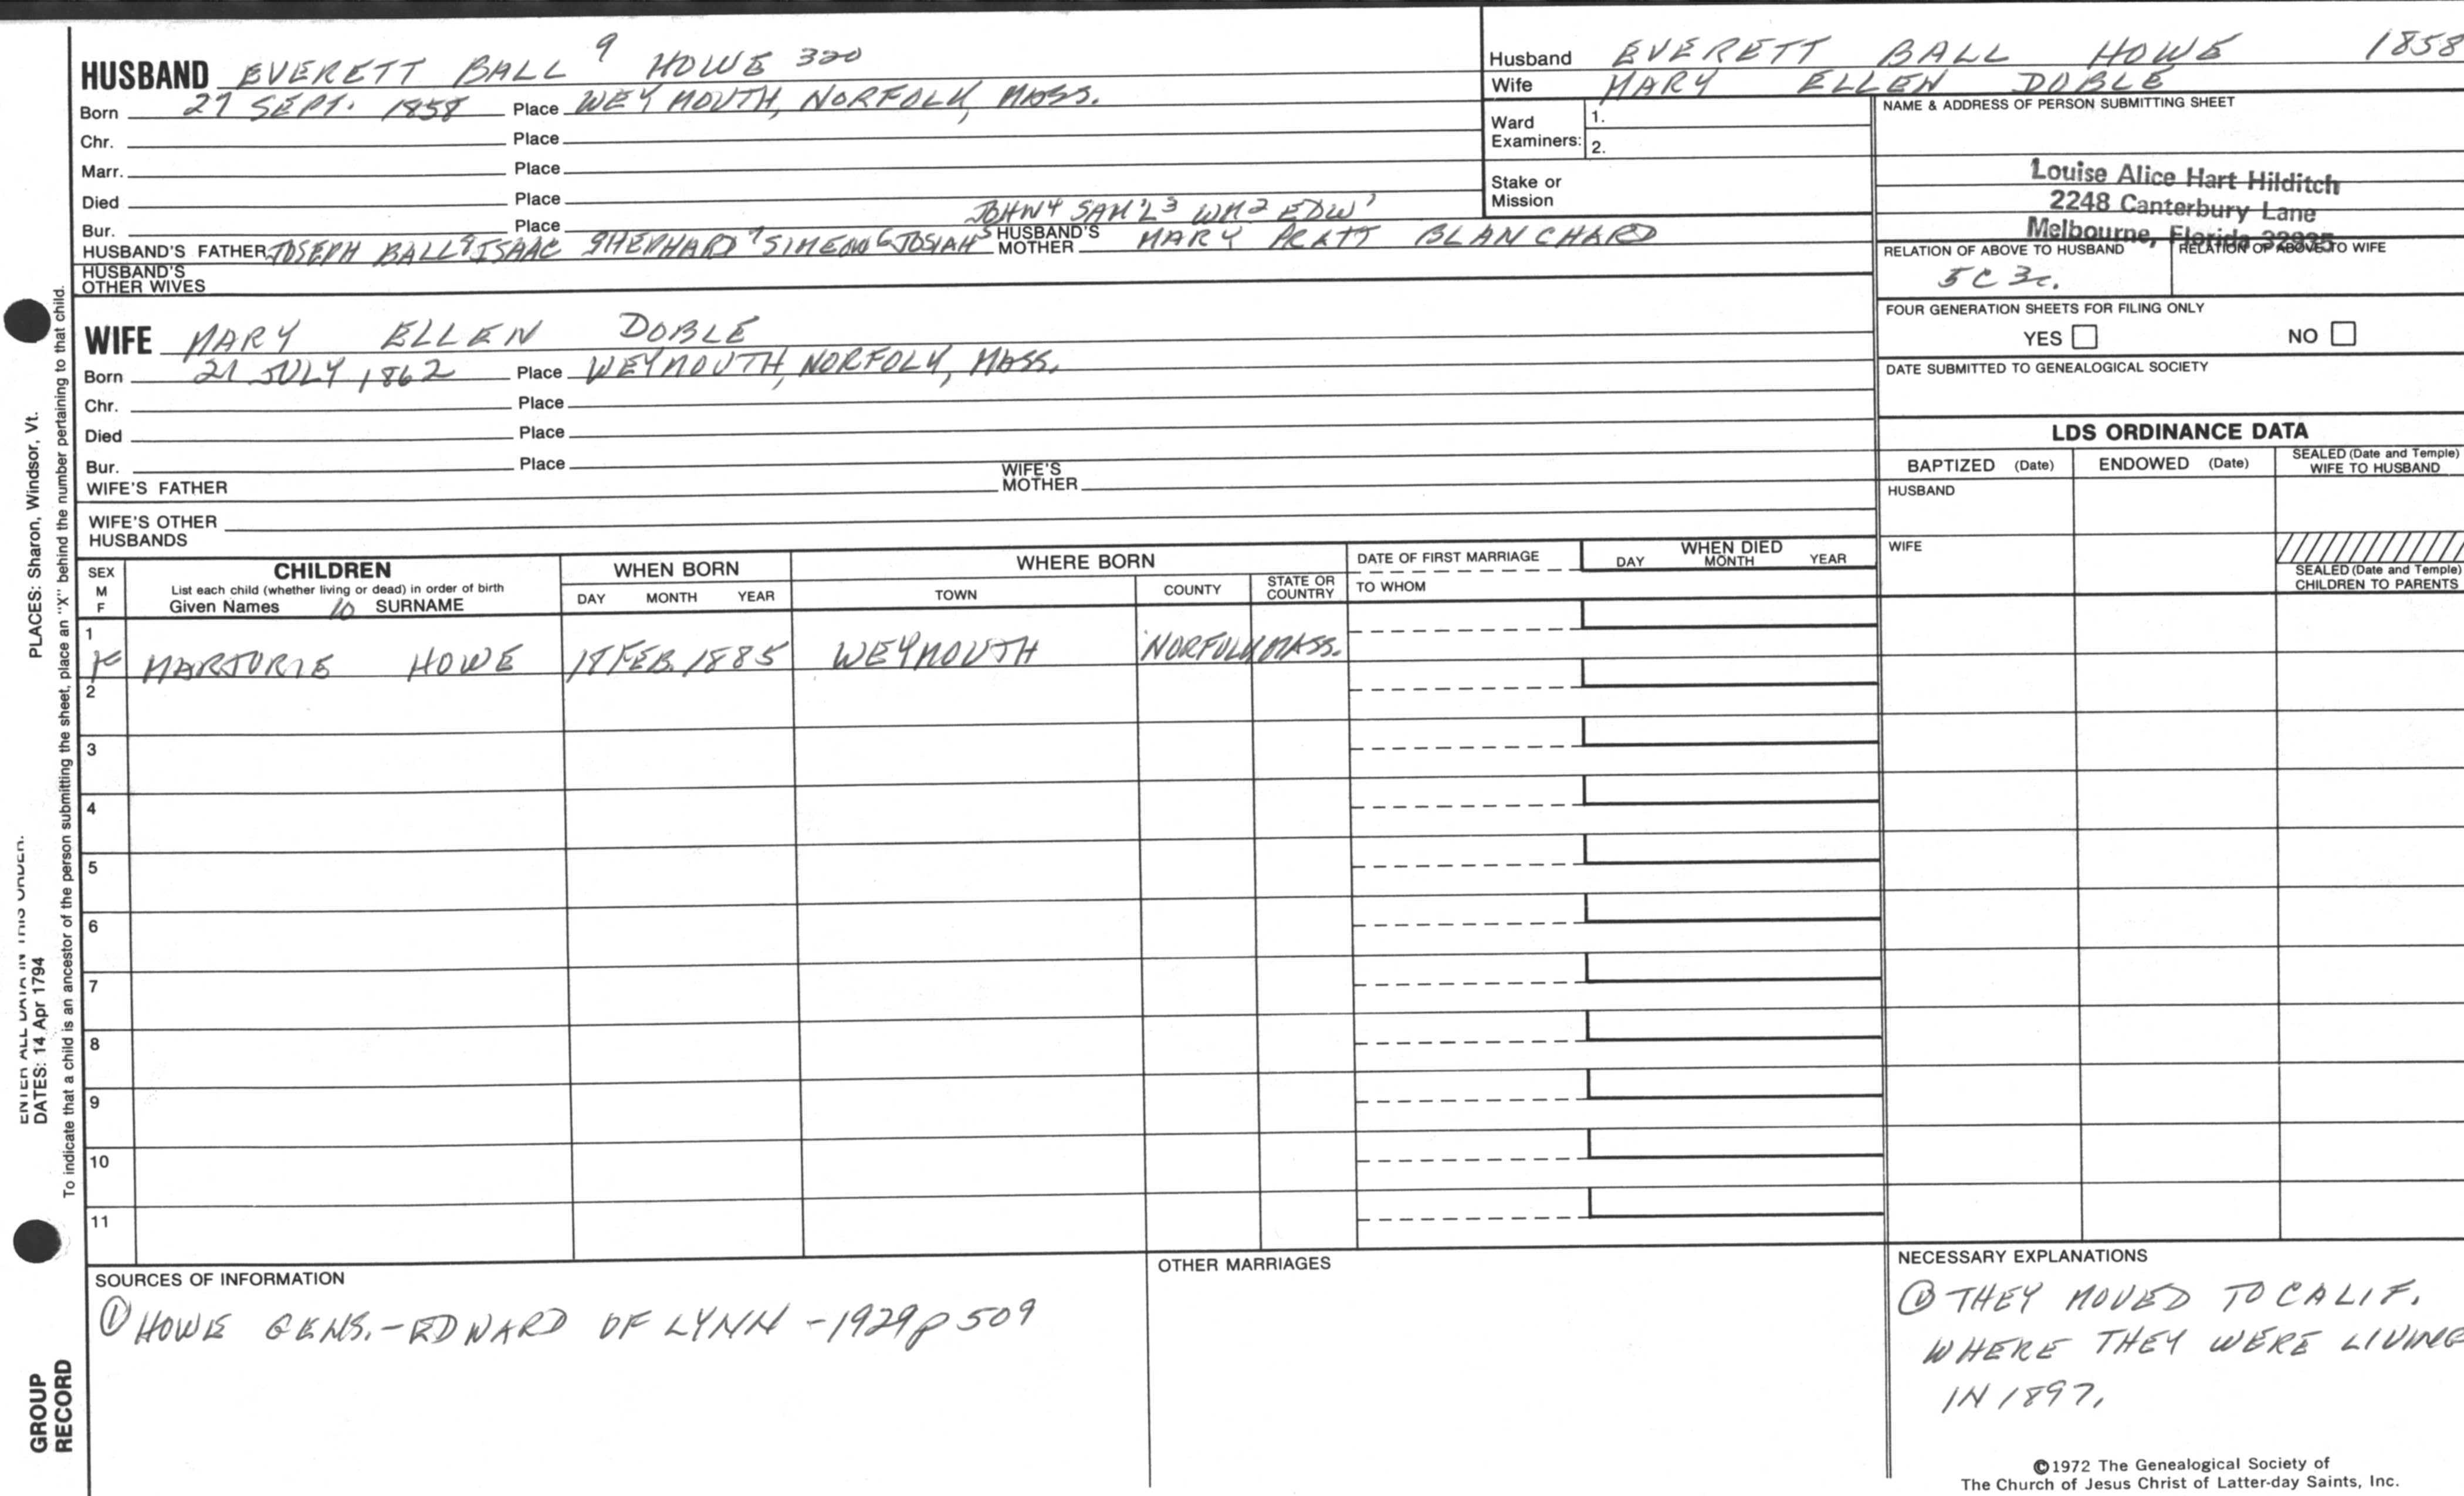 HUSBAND EVERETT BALL 9 HOWE 320
Born 27 SEPT. 1858 Place WEYMOUTH, NORFOLK, MASS.
Chr. Place
Marr. Place
Died Place
Bur. Place JOHN4 SAM'L3 WM2 EDW1
HUSBAND'S FATHER JOSEPH BALL8 ISAAC SHEPHARD7 SIMEON6 JOSIAH5 HUSBAND'S MOTHER MARY PRATT BLANCHARD
HUSBAND'S OTHER WIVES
WIFE MARY ELLEN DOBLE
Born 21 JULY 1862 Place WEYMOUTH, NORFOLK, MASS.
Chr. Place
Died Place
Bur. Place
WIFE'S FATHER WIFE'S MOTHER
WIFE'S OTHER HUSBANDS
Husband EVERETT BALL HOWE 1858
Wife MARY ELLEN DOBLE
Ward Examiners: 1.
2.
Stake or Mission
NAME & ADDRESS OF PERSON SUBMITTING SHEET
Louise Alice Hart Hilditch
2248 Canterbury Lane
Melbourne, Florida 32935
RELATION OF ABOVE TO HUSBAND RELATION OF ABOVE TO WIFE
5C 3r.
FOUR GENERATION SHEETS FOR FILING ONLY
YES NO
DATE SUBMITTED TO GENEALOGICAL SOCIETY
LDS ORDINANCE DATA
BAPTIZED (Date) ENDOWED (Date) SEALED (Date and Temple) WIFE TO HUSBAND
HUSBAND
WIFE
SEALED (Date and Temple) CHILDREN TO PARENTS
SEX M F
CHILDREN
List each child (whether living or dead) in order of birth
Given Names 10 SURNAME
WHEN BORN
DAY MONTH YEAR
WHERE BORN
TOWN COUNTY STATE OR COUNTRY
DATE OF FIRST MARRIAGE
TO WHOM
WHEN DIED
DAY MONTH YEAR
1
F MARJORIE HOWE 18 FEB. 1885 WEYMOUTH NORFOLK MASS.
2
3
4
5
6
7
8
9
10
11
SOURCES OF INFORMATION
① HOWE GENS.-EDWARD OF LYNN -1929 p 509
OTHER MARRIAGES
NECESSARY EXPLANATIONS
① THEY MOVED TO CALIF.
WHERE THEY WERE LIVING
IN 1897.
©1972 The Genealogical Society of
The Church of Jesus Christ of Latter-day Saints, Inc.
ENTER ALL DATA IN THIS ORDER.
DATES: 14 Apr 1794
PLACES: Sharon, Windsor, Vt.
To indicate that a child is an ancestor of the person submitting the sheet, place an "X" behind the number pertaining to that child.
GROUP
RECORD